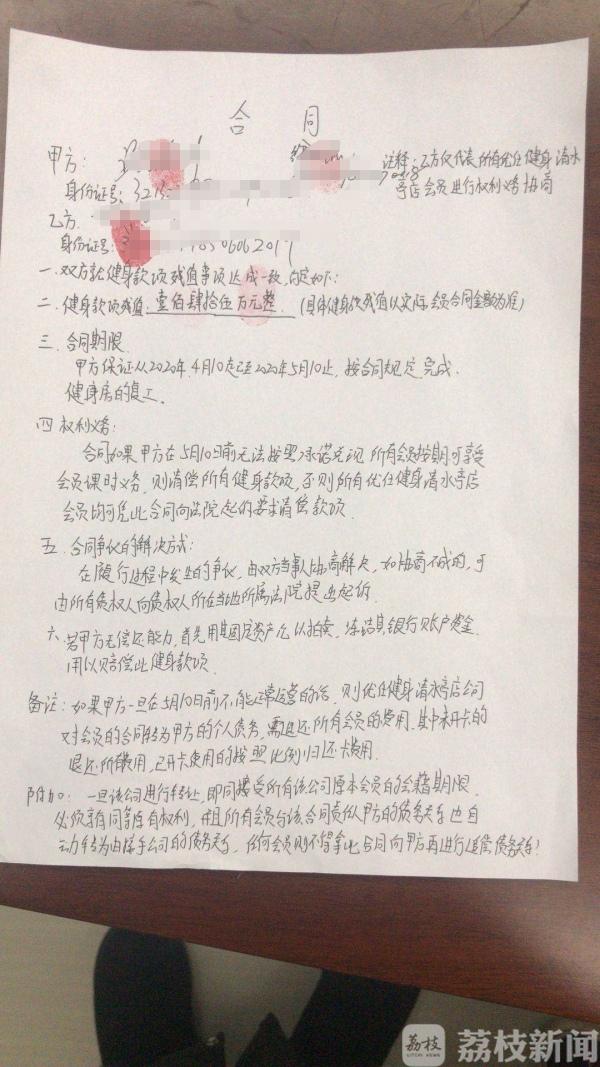 合 同
甲方:
注释:乙方仅代表所有优住健身清水
身份证号:321
亭店会员进行权利义务协商
乙方
身份证号:3
一.双方就健身款项残值事项达成一致,约定如下:
二.健身款项残值:壹佰肆拾伍万元整.(具体健身款残值以实际会员合同金额为准)
三.合同期限
甲方保证从2020年.4月10起至2020年5月10止,按合同规定完成.
健身房的复工.
四 权利义务:
合同如果甲方在5月10日前无法按照承诺兑现所有会员按期可享受
会员课时义务.则清偿所有健身款项,否则所有优住健身清水亭店
会员均可凭此合同向法院起的要求清偿款项.
五.合同争议的解决方式:
在履行过程中发生的争议,由双方当事人协商解决,如协商不成的,可
由所有债权人向债权人所在当地所属法院提出起诉.
六.若甲方无偿还能力,首先用其固定资产以拍卖,冻结其银行账户资金.
用以赔偿此健身款项.
备注:如果甲方一旦在5月10日前不能正常运营的话,则优住健身清水亭店公司
对会员的合同转为甲方的个人债务,需退还所有会员的费用.其中未开卡的
退还所有费用,已开卡使用的按照比例归还卡费用.
附加:一旦该公司进行转让,即同接受所有该公司原本会员的会籍期限.
必须享有同等原有权利,并且所有会员与该合同责任人甲方的债务关系也自
动转为由接手公司的债务关系,任何会员则不得拿此合同向甲方再进行追偿债务关系!
荔枝
LITCHI NEWS
荔枝新闻